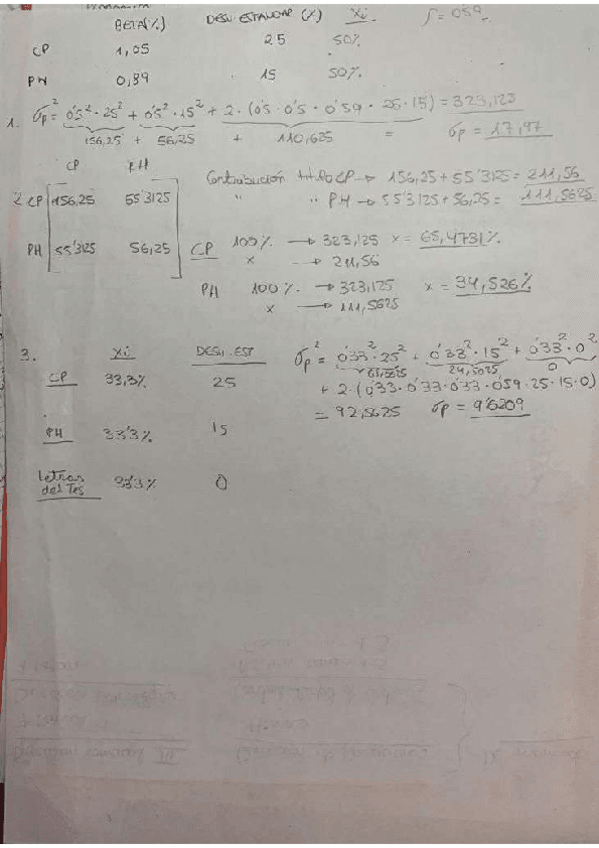 BETA(%) DESV. ESTANDAR (%) Xi ρ = 0'59
CP 1,05 25 50%
PH 0,89 15 50%
1. σp² = 0'5² · 25² + 0'5² · 15² + 2 · (0'5 · 0'5 · 0'59 · 25 · 15) = 323,125
156,25 + 56,25 + 110,625 = σp = 17,97
CP PH
2 CP 156,25 55'3125
PH 55'3125 56,25
Contribución CP → 156,25 + 55'3125 = 211,56
" " PH → 55'3125 + 56,25 = 111,5625
CP 100% → 323,125 x = 65,4731%
x → 211,56
PH 100% → 323,125 x = 34,526%
x → 111,5625
3. Xi DESV. EST
CP 33,3% 25
PH 33'3% 15
Letras del Tes 33'3% 0
σp² = 0'33² · 25² + 0'33² · 15² + 0'33² · 0²
24,5025 0
+ 2 · (0'33 · 0'33 · 0'33 · 0'59 · 25 · 15 · 0)
= 92,5625 σp = 9'6209